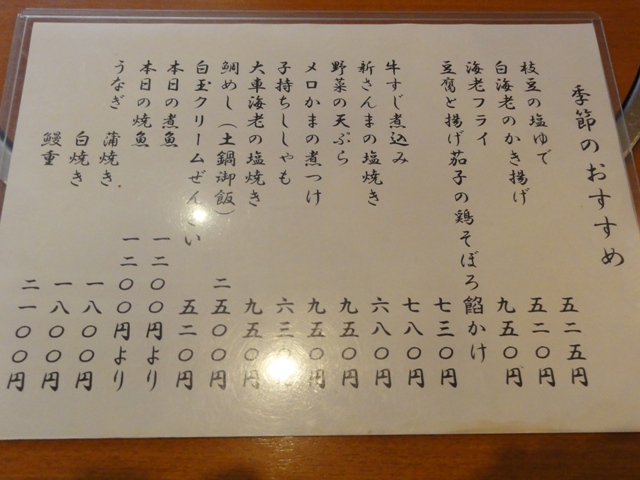 季節のおすすめ
枝豆の塩ゆで 五二五円
白海老のかき揚げ 五二〇円
海老フライ 九五〇円
豆腐と揚げ茄子の鶏そぼろ餡かけ 七三〇円
牛すじ煮込み 七八〇円
新さんまの塩焼き 六八〇円
野菜の天ぷら 九五〇円
メロかまの煮つけ 九五〇円
子持ちししゃも 六三〇円
大車海老の塩焼き 九五〇円
鯛めし（土鍋御飯） 二五〇〇円
白玉クリームぜんざい 五二〇円
本日の煮魚 一二〇〇円より
本日の焼魚 一二〇〇円より
うなぎ 蒲焼き 一八〇〇円
白焼き 一八〇〇円
鰻重 二一〇〇円